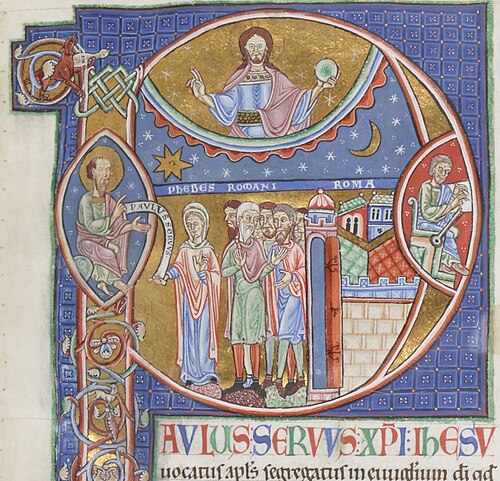 PHEBES ROMANI ROMA
PAVLVS SERVVS
AVLUS:SERVVS:XP̄I:IHESV
uocatus apłs segregatus in euuãglium dı̄ qđ